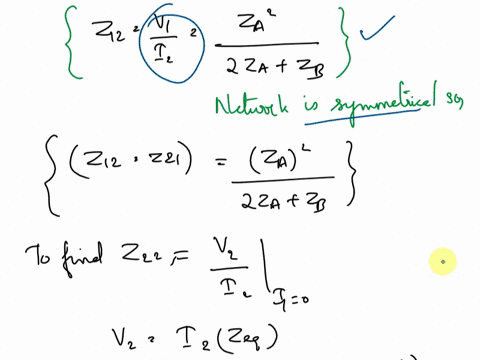 { Z12 = V1/I2 = ZA²/(2ZA + ZB) } ✓
Network is symmetrical so,
{ (Z12 = Z21) = (ZA)²/(2ZA + ZB) }
To find Z22 = V2/I2 | I1=0
V2 = I2 (Zeq)